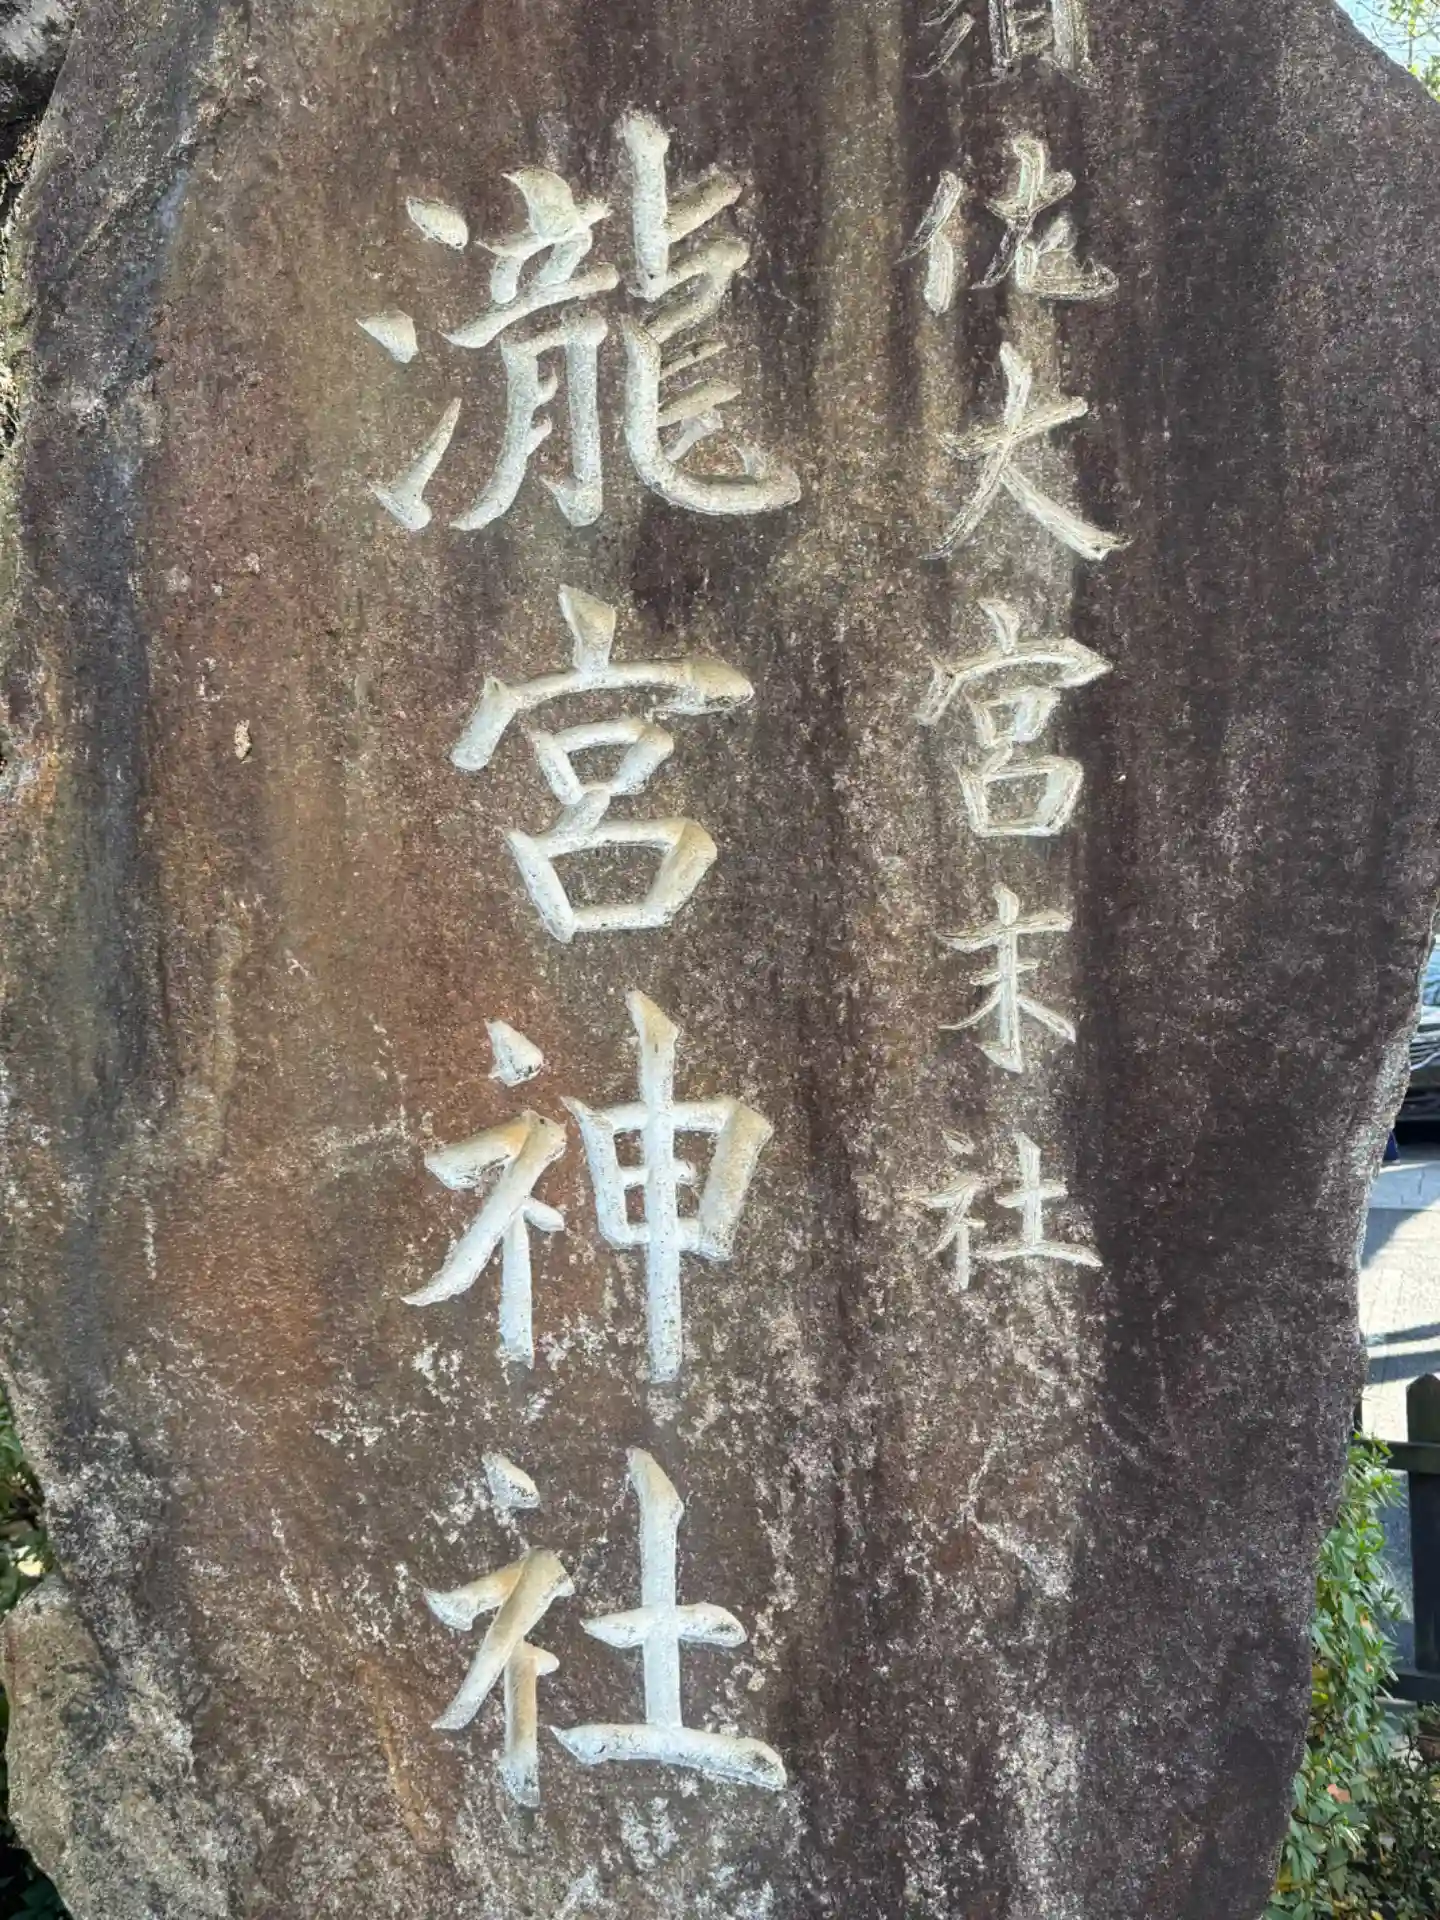 佐大宮末社
瀧宮神社